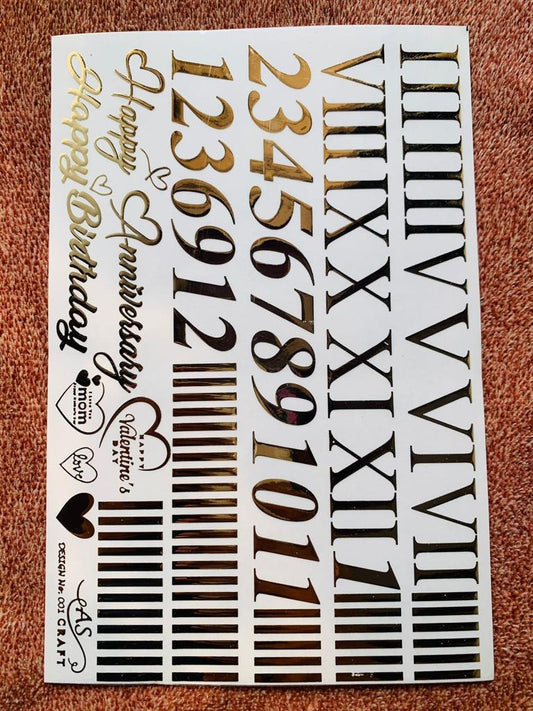 I II III IV V VI VII
VIII IX X XI XII 1
2 3 4 5 6 7 8 9 10 11
12 3 6 9 12
Happy Anniversary
HAPPY
Valentine's
DAY
Happy Birthday
I LOVE YOU
mom
love
AS
CRAFT
DESIGN No. 001